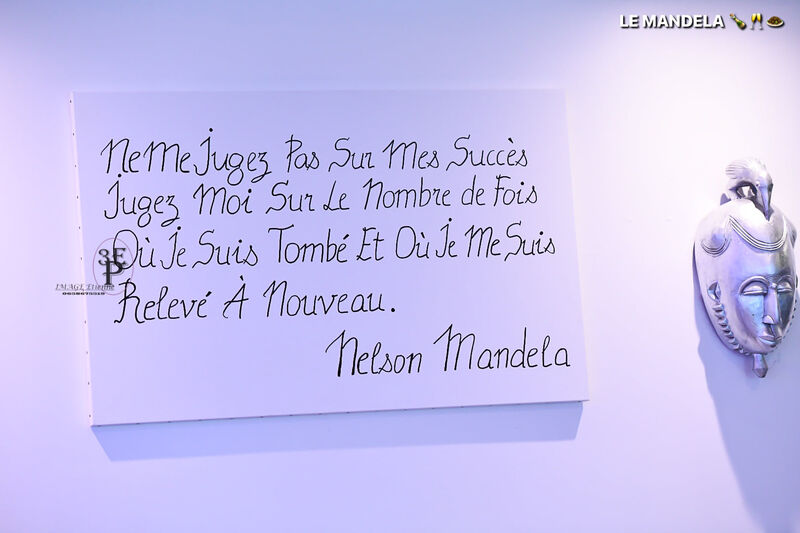 LE MANDELA 🍾🥂🍲
Ne Me Jugez Pas Sur Mes Succès
Jugez Moi Sur Le Nombre de Fois
Où Je Suis Tombé Et Où Je Me Suis
Relevé À Nouveau.
Nelson Mandela
3E
P
IMAGE Etienne